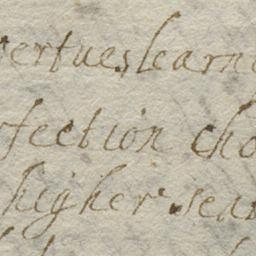 vertues learn
fection cho
higher sea